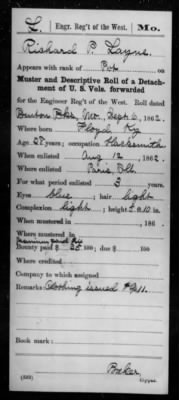 L. Engr. Reg't of the West. Mo.
Richard P. Layne
Appears with rank of Pvt. on
Muster and Descriptive Roll of a Detach-
ment of U. S. Vols. forwarded
for the Engineer Reg't of the West. Roll dated
Benton Bks, Mo. Sept 6, 1862.
Where born Floyd Ky
Age 28 years; occupation Blacksmith
When enlisted Aug 12, 1862.
Where enlisted Paris, Ill.
For what period enlisted 3 years.
Eyes blue; hair light
Complexion light; height 5 ft. 10 in.
When mustered in , 186 .
Where mustered in
Bounty paid $ 25 100; due $ 100
Where credited
Company to which assigned
Remarks: Clothing issued $
Book mark:
Copyist.